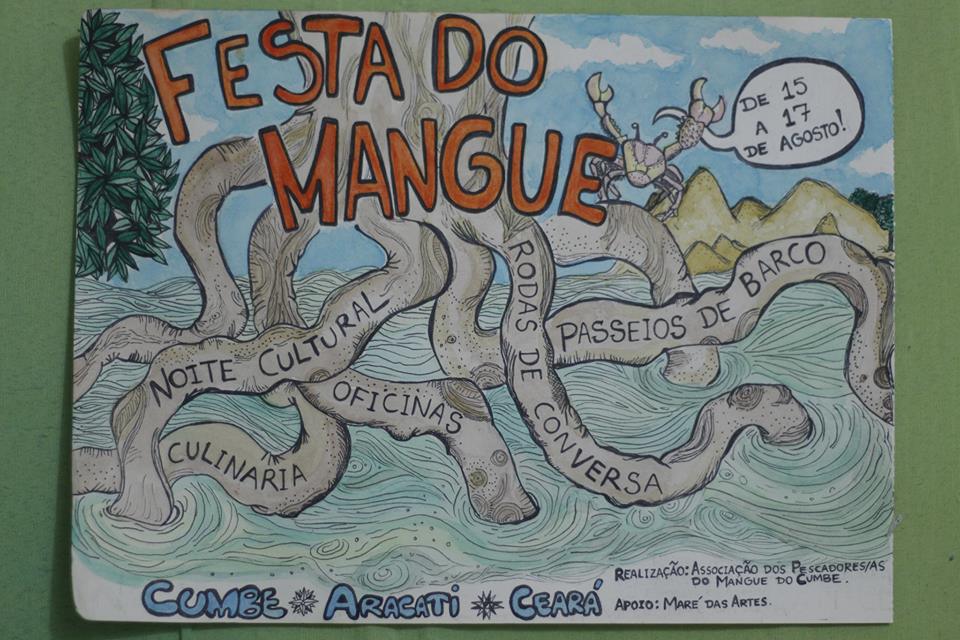 FESTA DO
MANGUE
DE 15
A 17
DE AGOSTO!
NOITE CULTURAL
CULINARIA
OFICINAS
RODAS DE CONVERSA
PASSEIOS DE BARCO
CUMBE ARACATI CEARÁ
REALIZAÇÃO: ASSOCIAÇÃO DOS PESCADORES/AS
DO MANGUE DO CUMBE.
APOIO: MARÉ DAS ARTES.